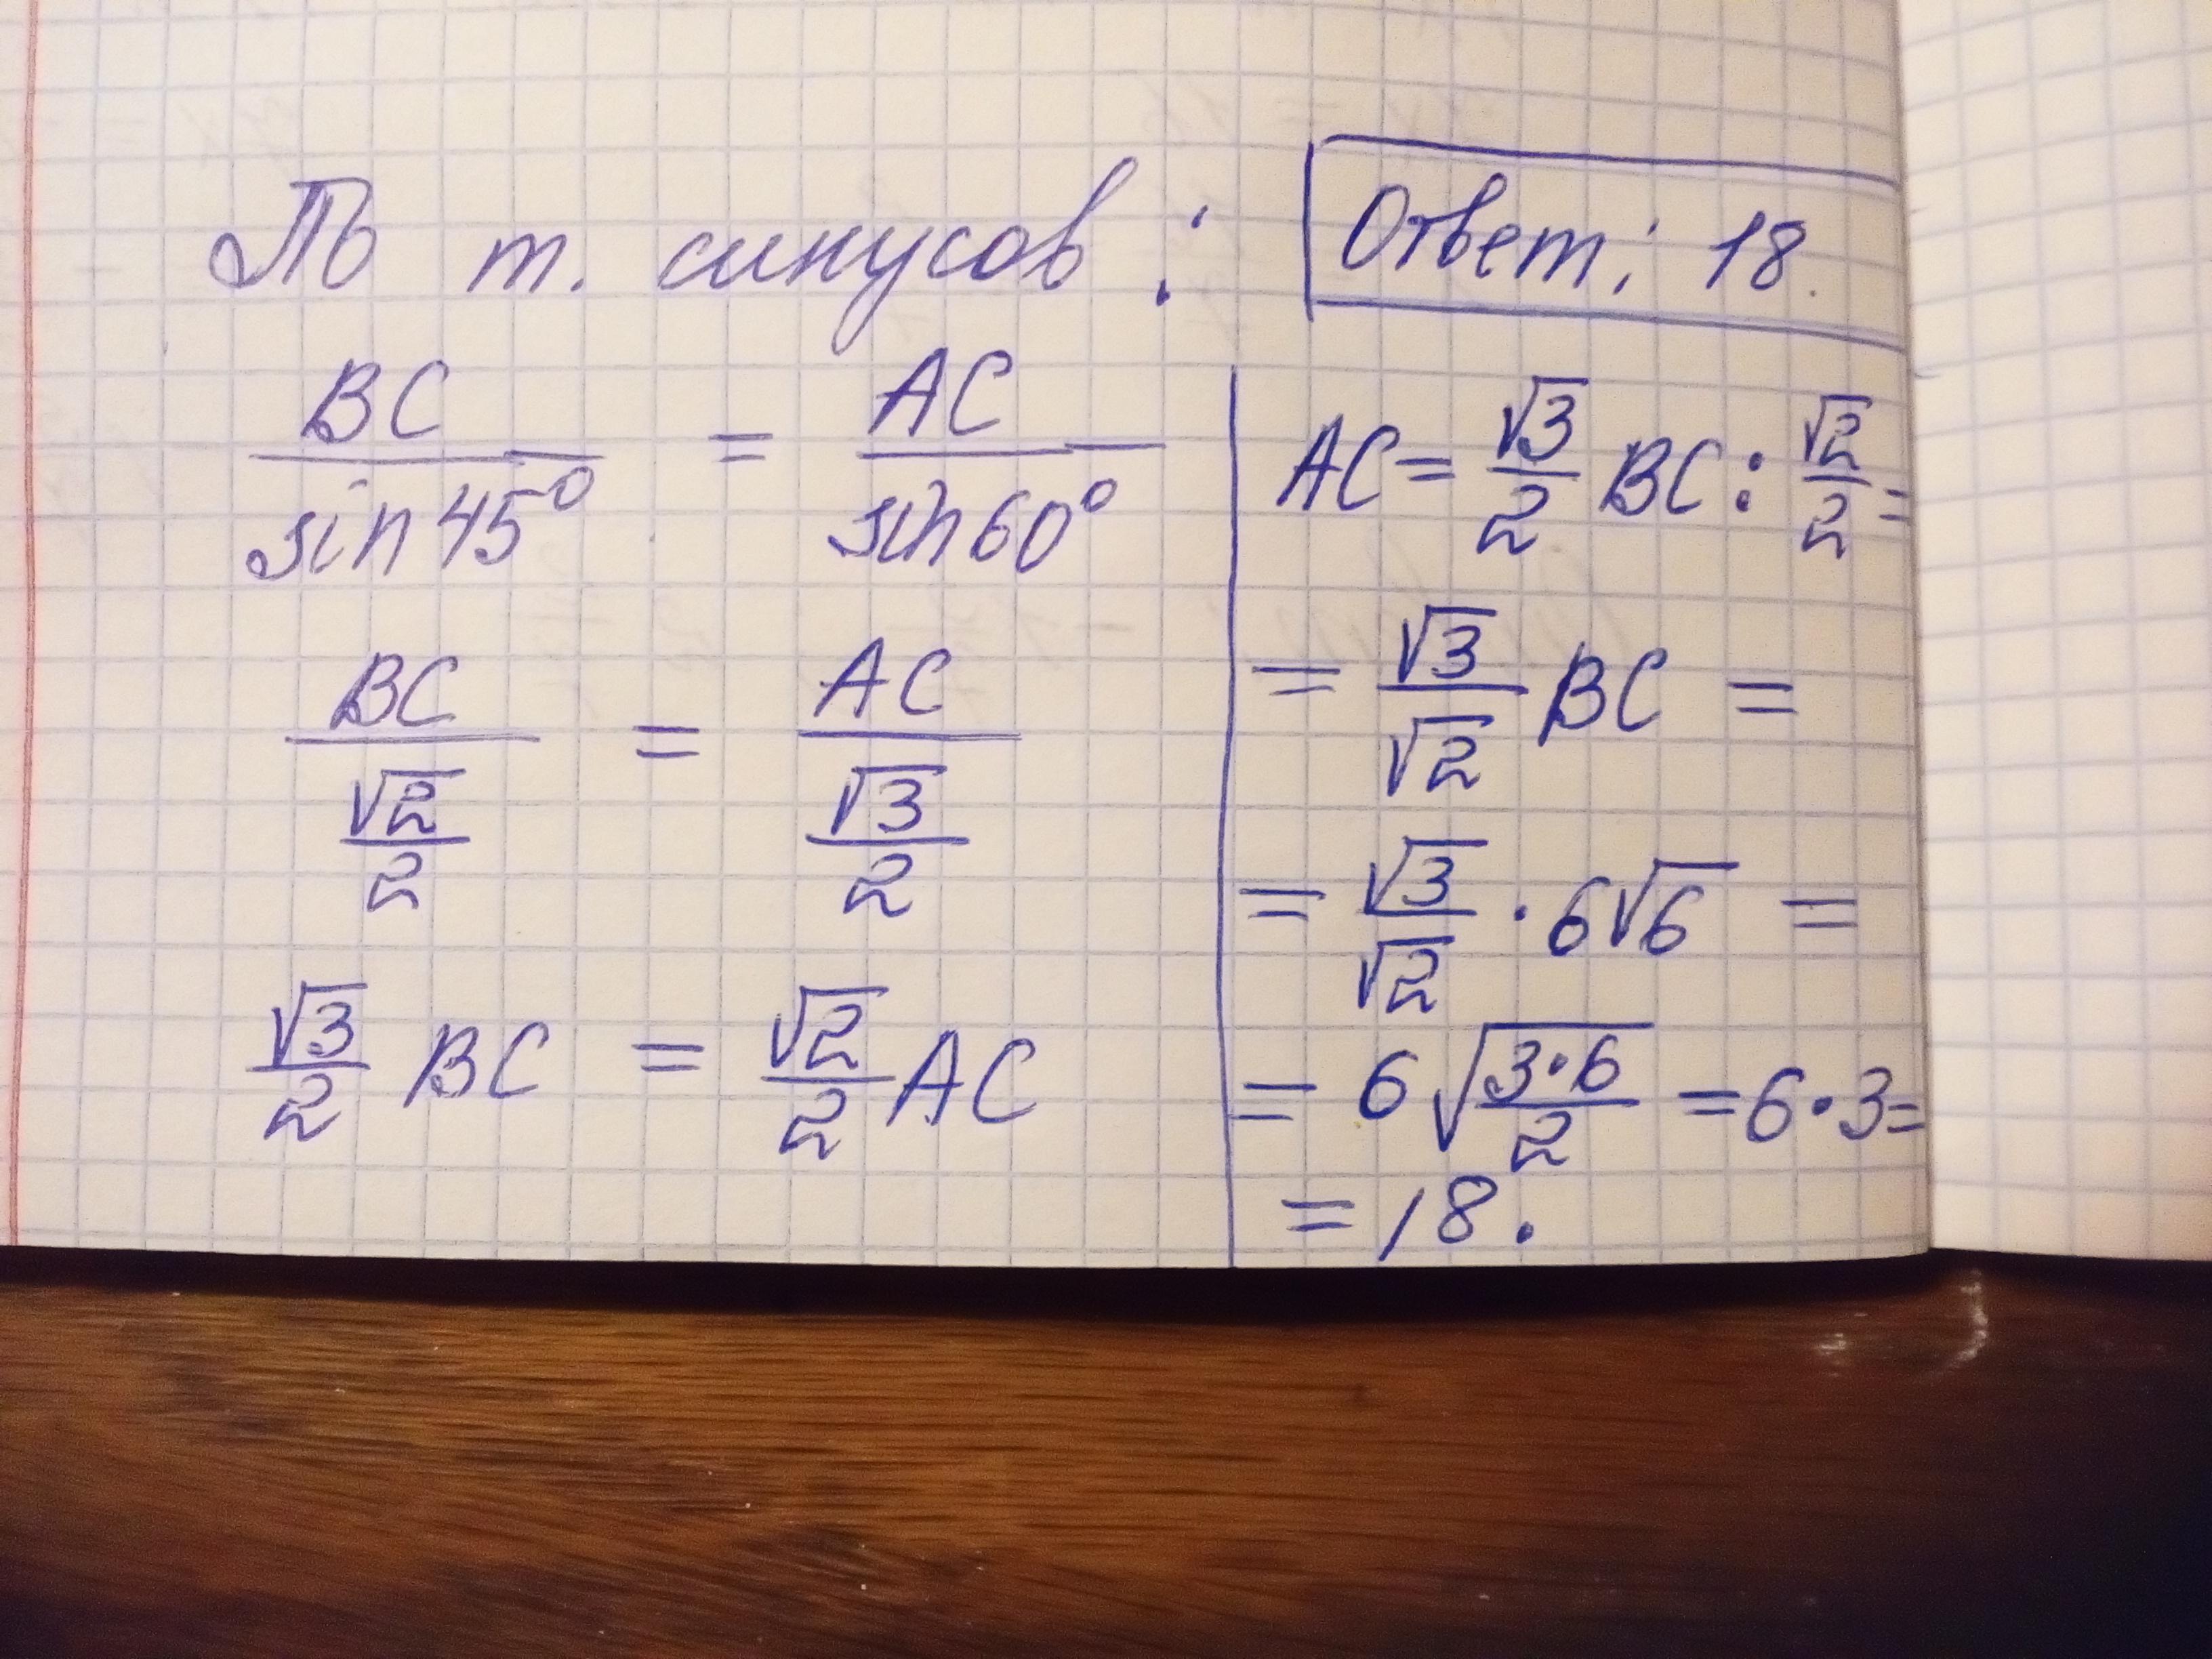 По т. синусов:
BC / sin 45° = AC / sin 60°
BC / (√2/2) = AC / (√3/2)
√3/2 BC = √2/2 AC
Ответ: 18.
AC = √3/2 BC : √2/2 =
= √3/√2 BC =
= √3/√2 · 6√6 =
= 6 √(3·6/2) = 6·3 =
= 18.